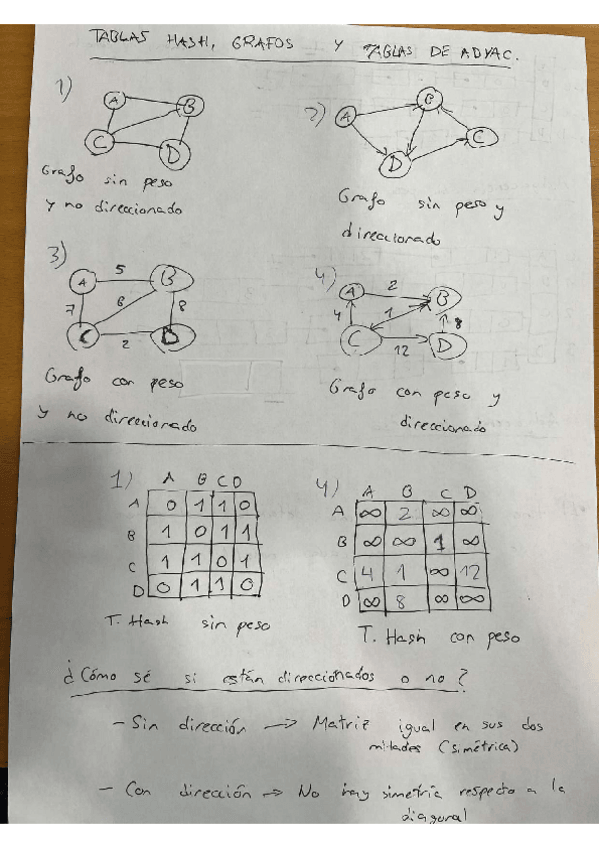 TABLAS HASH, GRAFOS Y TABLAS DE ADYAC.
1)
A
B
C
D
Grafo sin peso
y no direccionado
2)
A
B
C
D
Grafo sin peso y
direccionado
3)
A 5 B
7 6 8
C 2 D
Grafo con peso
y no direccionado
4)
A 2 B
4 1 8
C 12 D
Grafo con peso y
direccionado
1) A B C D
A 0 1 1 0
B 1 0 1 1
C 1 1 0 1
D 0 1 1 0
T. Hash sin peso
4) A B C D
A ∞ 2 ∞ ∞
B ∞ ∞ 1 ∞
C 4 1 ∞ 12
D ∞ 8 ∞ ∞
T. Hash con peso
¿Cómo sé si están direccionados o no?
- Sin dirección -> Matriz igual en sus dos
mitades (simétrica)
- Con dirección -> No hay simetría respecto a la
diagonal